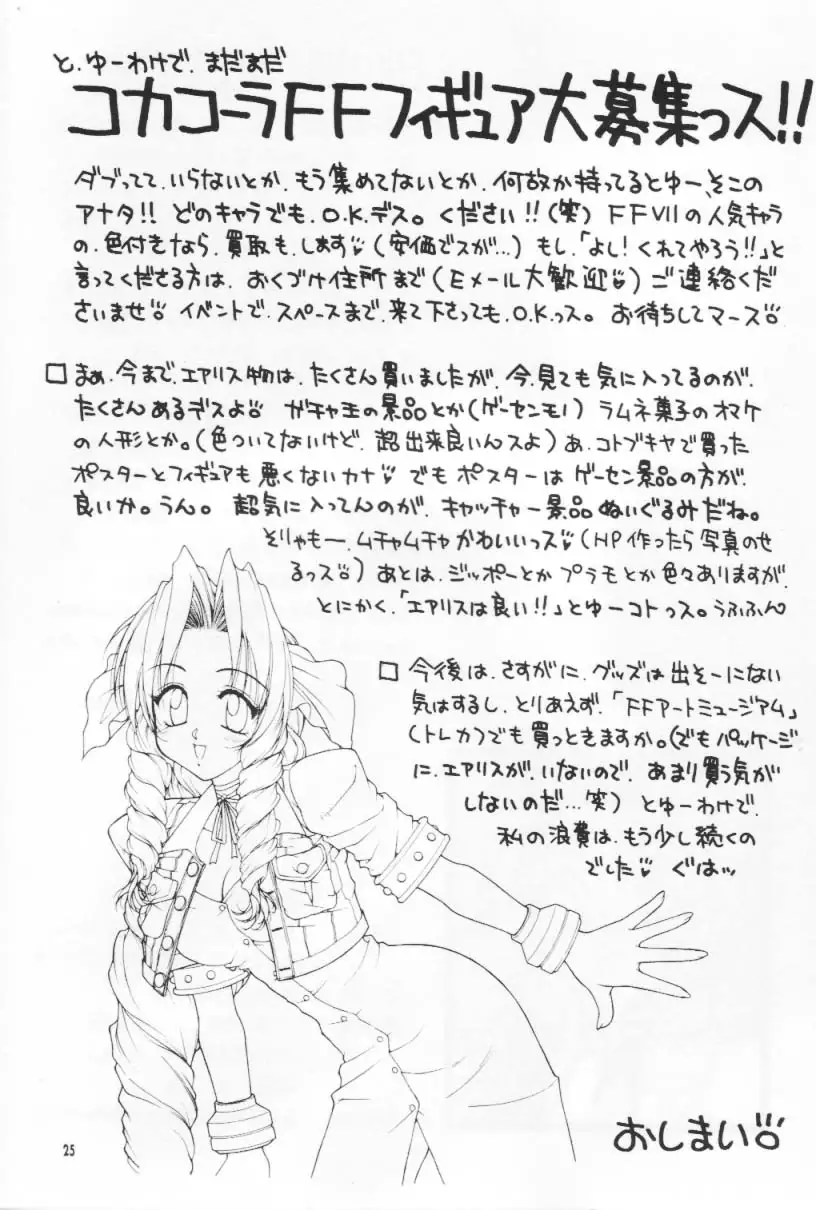 と.ゆーわけで.まだまだ
コカコーラFFフィギュア大募集っス!!
ダブってて.いらないとか.もう集めてないとか.何故か持ってるとゆー、そこの
アナタ!! どのキャラでも.O.K.デス。ください!!(笑) FFVIIの人気キャラ
の.色付きなら.買取も.します(安価でスが…)もし.「よし!くれてやろう!!」と
言ってくださる方は.おくづけ住所まで(Eメール大歓迎)ご連絡くだ
さいませ イベントで.スペースまで.来て下さっても.O.K.っス。お待ちしてマース
□ まぁ.今まで.エアリス物は.たくさん買いましたが.今.見ても気に入ってるのが.
たくさんあるデスよ ガチャ王の景品とか(ゲーセンモノ)ラムネ菓子のオマケ
の人形とか。(色ついてないけど.超出来良いんスよ)あ.コトブキヤで買った
ポスターとフィギュアも悪くないカナ でもポスターはゲーセン景品の方が.
良いか。うん。 超気に入ってんのが.キャッチャー景品ぬいぐるみだね。
そりゃもー.ムチャムチャかわいいっス(HP作ったら写真のせ
るっス)あとは.ジッポーとかプラモとか色々ありますが.
とにかく.「エアリスは良い!!」とゆーコトっス。うふふん
□ 今後は.さすがに.グッズは出そーにない
気はするし.とりあえず.「FFアートミュージアム」
(トレカ)でも買っときますか。(でもパッケージ
に.エアリスが.いないので.あまり買う気が
しないのだ…笑) とゆーわけで.
私の浪費は.もう少し続くの
でした ぐはッ
おしまい
25